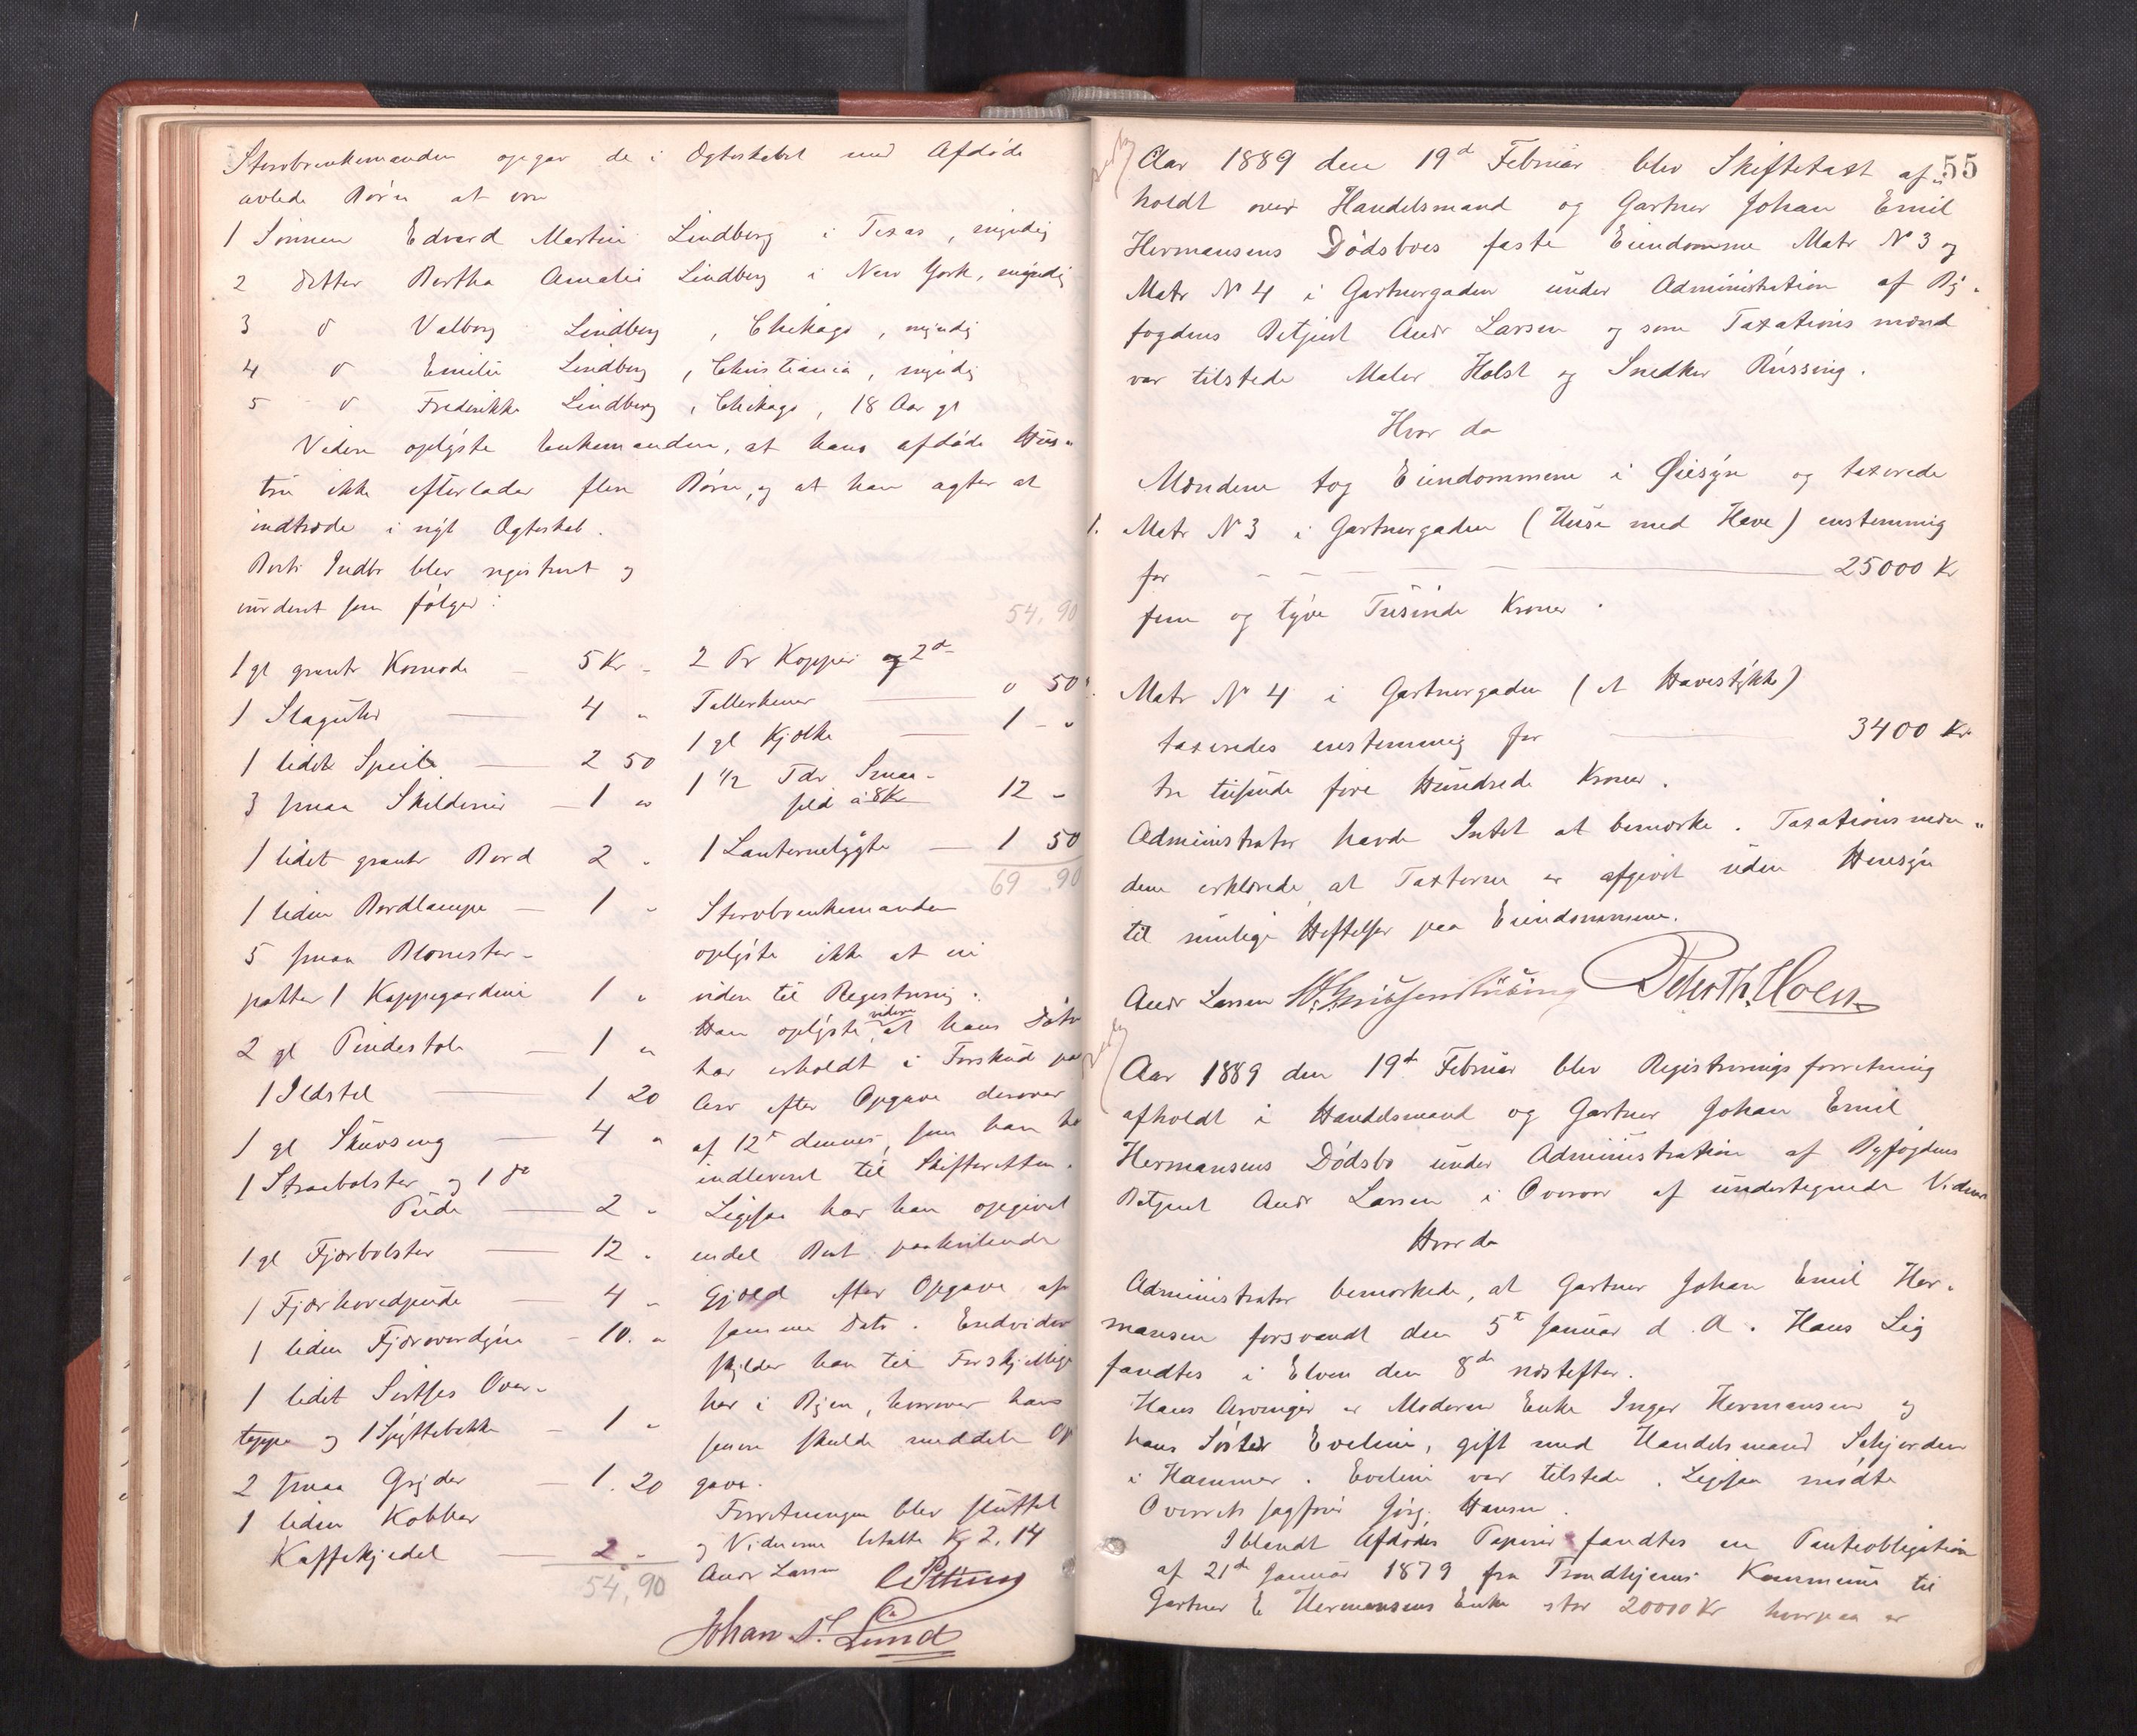 Stervboenkemanden opgav de i Ægteskabet med Afdøde
avlede Børn at være
1 Sønnen Edvard Martin Lindberg i Texas, myndig
2 Datter Bertha Amalie Lindberg i New York, myndig
3 d Valborg Lindberg, Chikago, myndig
4 d Emilie Lindberg, Christiania, myndig
5 d Frederikke Lindberg, Chikago, 18 Aar gl
Videre oplyste Enkemanden, at hans afdøde Hus-
tru ikke efterlader flere Børn, og at han agter at
indtræde i nyt Ægteskab.
Boets Indbo blev registreret og
vurderet som følger:
1 gl granTr Komode 5 Kr "
1 Slaguhr 4 "
1 lidet Speil 2 50
3 smaa Skilderier 1 "
1 lidet grantr Bord 2 "
1 liden Bordlampe 1 "
5 smaa Blomster-
potter 1 Kappegardine 1 "
2 gl Pindestole 1 "
1 Ildstel 1 20
1 gl Skuvseng 4 "
1 Straabolster og 1 do
Pude 2 "
1 gl Fjærbolster 12 "
1 Fjærhovedpude 4 "
1 liden Fjæroverdyne 10. "
1 lidet Sirtses Over-
teppe og 1 Spyttebakke 1 "
2 smaa Gryder 1. 20
1 liden Kobber
Kaffekjedel 2 "
54,90
54,90
2 Pr Kopper og 2 d
Tallerkener 0 50
1 gl Kjælke 1 - "
1 1/2 Tdr Smaa-
sild à 8 Kr 12 "
1 Lanternelygte 1 50
69.90
Stervboenkemanden
oplyste ikke at eie
videre til Registrering.
Han oplyste videre at hans Døtre
har erholdt i Forskud paa
Arv efter Opgave derover
af 12te dennes, som han har
indleveret til Skifteretten.
Ligesaa har han opgivet
endel Boet paahvilende
Gjæld efter Opgave af
samme Dato. Endvidere
skylder han til Forskjellige
her i Byen, hvorover han
senere skulde meddele Op
gave.
Forretningen blev sluttet
og Vidnerne betalte Kr 2,14
Andr Larsen
Johan A. Lund
55
Aar 1889 den 19de Februar blev Skiftetaxt af-
holdt over Handelsmand og Gartner Johan Emil
Hermansens Dødsboes faste Eiendomme Matr No 3 og
Matr No 4 i Gartnergaden under Administration af By-
fogdens Betjent Andr Larsen og som Taxationsmænd
var tilstede Maler Holst og Snedker Russing.
Hvor da
Mændene tog Eiendommene i Øiesyn og taxerede
1. Matr No 3 i Gartnergaden (Huse med Have) enstemmig
for 25000 Kr
fem og tyve Tusinde Kroner.
Matr No 4 i Gartnergaden (et Havestykke)
taxeredes enstemmig for 3400 Kr
tre tusinde fire Hundrede Kroner.
Administrator havde Intet at bemærke. Taxationsmæn-
dene erklærede at Taxterne er afgivet uden Hensyn
til mulige Heftelser paa Eiendommene.
Andr Larsen
Aar 1889 den 19de Februar blev Registreringsforretning
afholdt i Handelsmand og Gartner Johan Emil
Hermansens Dødsbo under Administration af Byfogdens
Betjent Andr Larsen i Overvær af undertegnede Vidner
Hvor da
Administrator bemærkede, at Gartner Johan Emil Her-
mansen forsvandt den 5te Januar d. A. Hans Lig
fandtes i Elven den 8de næstefter.
Hans Arvinger er Moderen Enke Inger Hermansen og
hans Søster Eveline, gift med Handelsmand Schjerden
i Hammer. Eveline var tilstede. Ligesaa mødte
Overretssagfører Jørg. Hansen.
Iblandt Afdødes Papirer fandtes en Panteobligation
af 21de Januar 1879 fra Trondhjems Kommune til
Gartner E Hermansens Enke stor 20000 Kr hvorpaa er